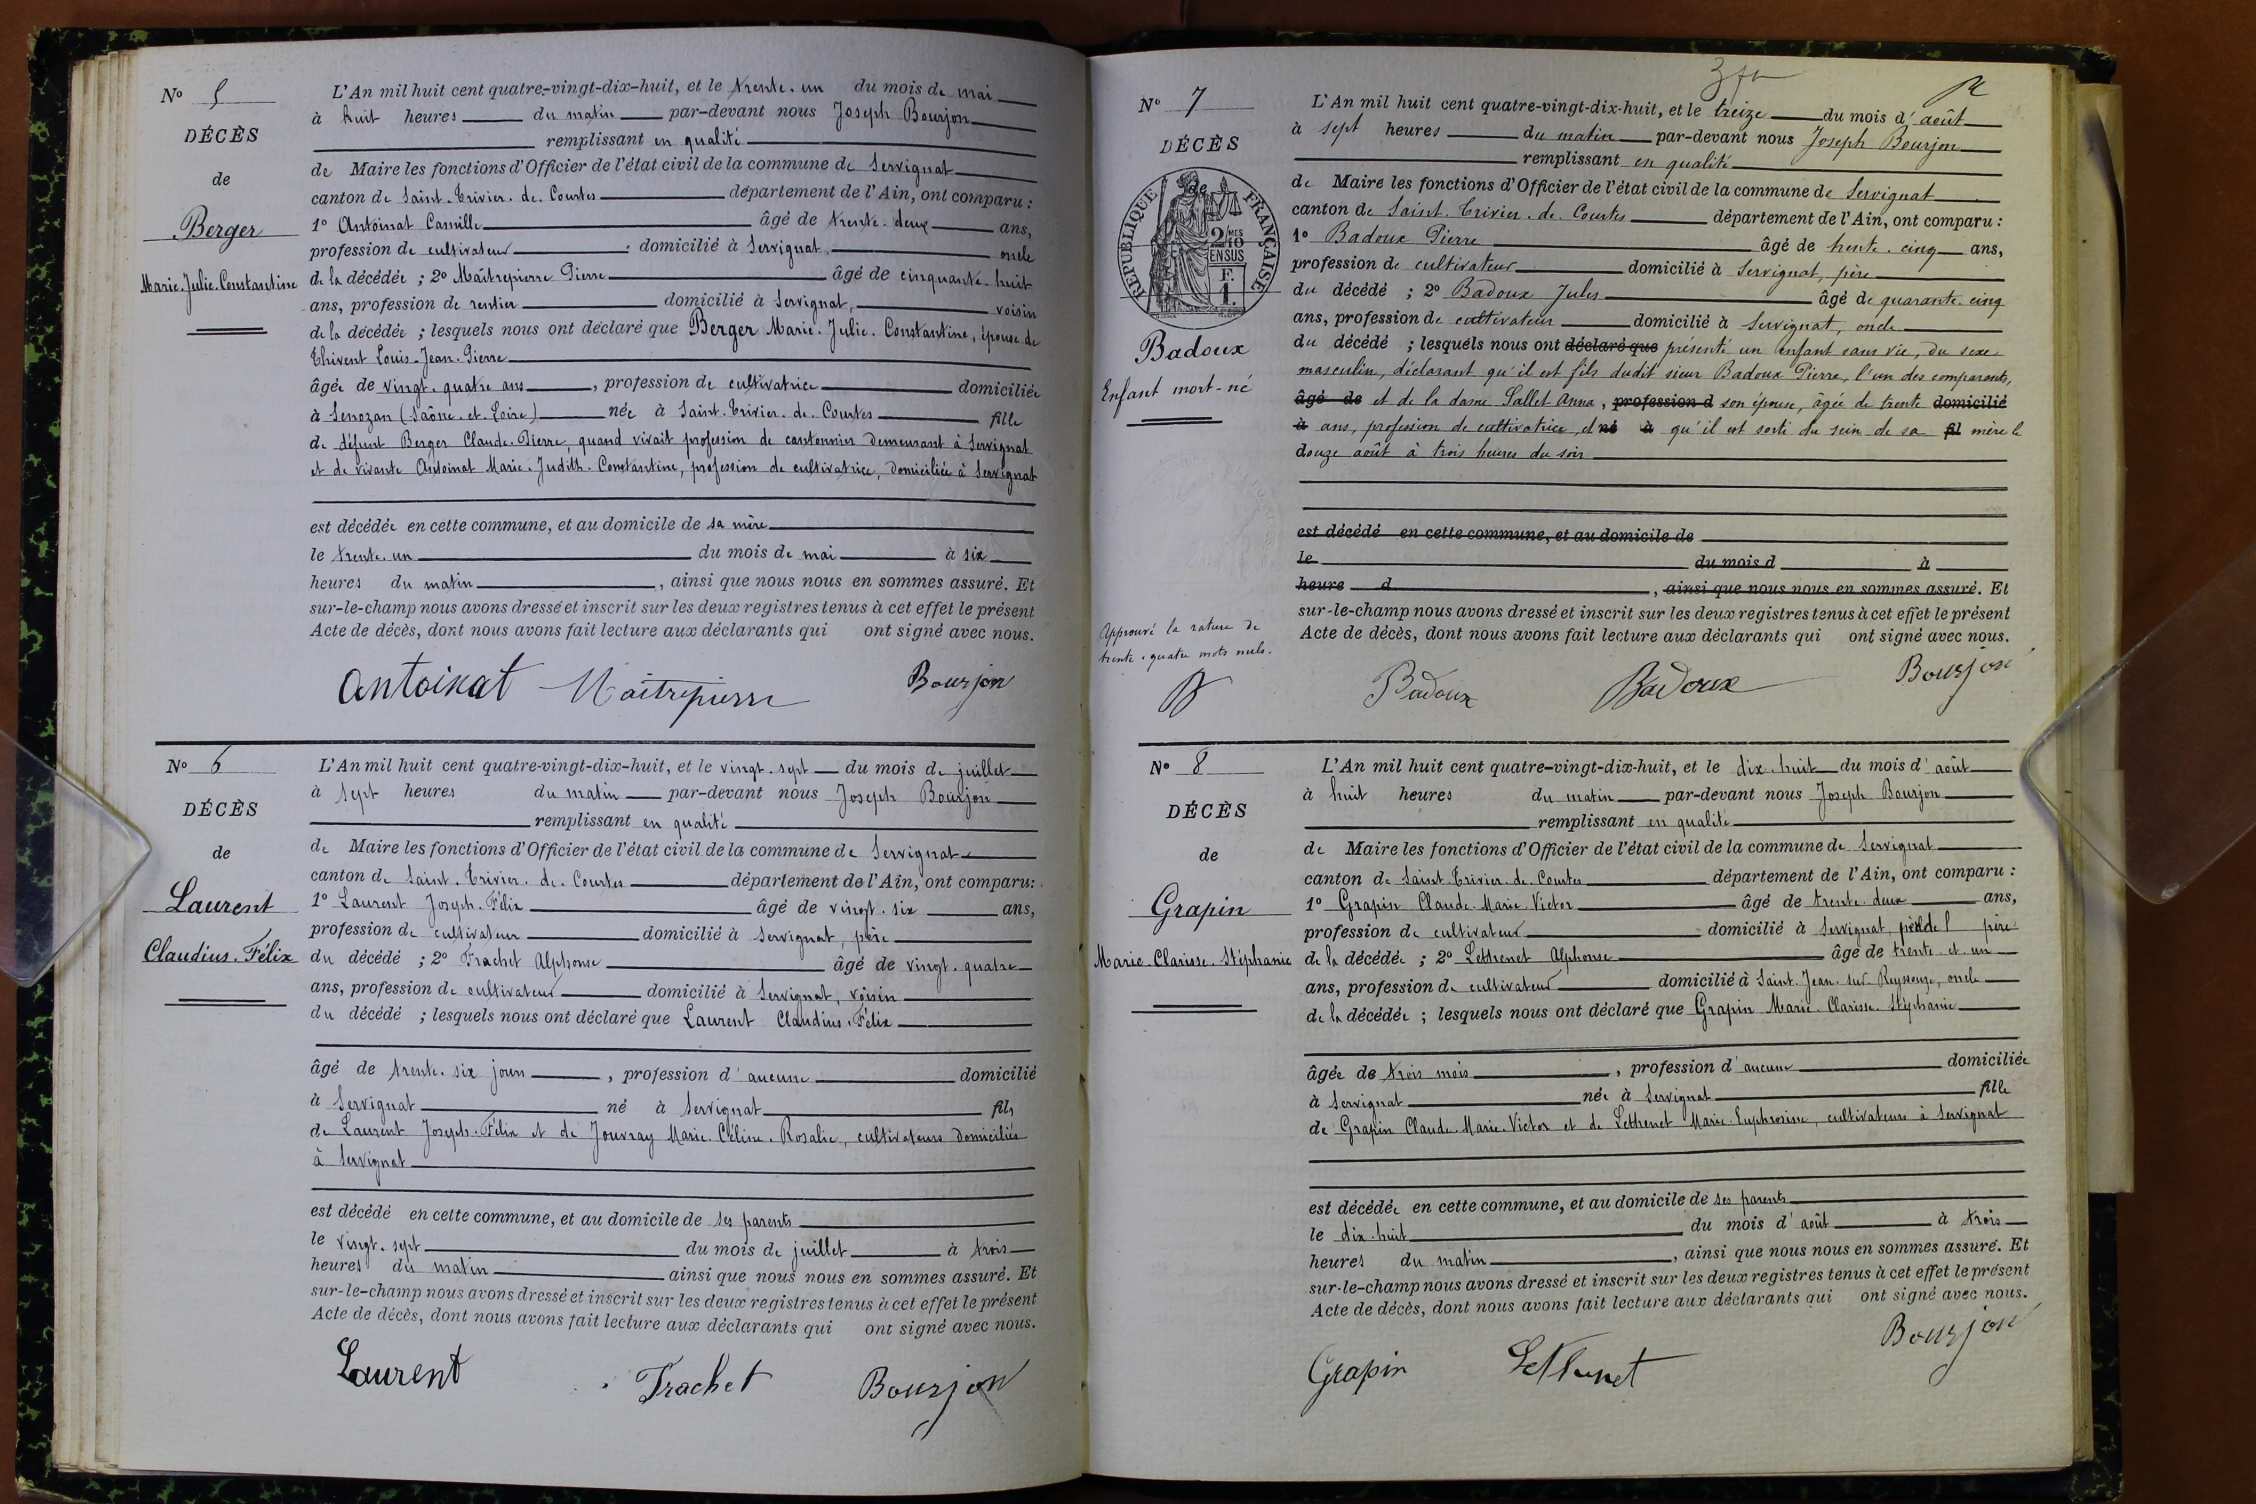 N° 5
DÉCÈS
de
Berger
Marie-Julie-Constantine
L'An mil huit cent quatre-vingt-dix-huit, et le trente-un du mois de mai
à huit heures du matin par-devant nous Joseph Bourjon
remplissant en qualité
de Maire les fonctions d'Officier de l'état civil de la commune de Servignat
canton de Saint-Trivier-de-Courtes département de l'Ain, ont comparu :
1° Antoinat Camille âgé de trente-deux ans,
profession de cultivateur domicilié à Servignat, oncle
de la décédée ; 2° Maîtrepierre Pierre âgé de cinquante-huit
ans, profession de rentier domicilié à Servignat, voisin
de la décédée ; lesquels nous ont déclaré que Berger Marie-Julie-Constantine, épouse de
Thivent Louis-Jean-Pierre
âgée de vingt-quatre ans, profession de cultivatrice domiciliée
à Senozan (Saône-et-Loire) née à Saint-Trivier-de-Courtes fille
de défunt Berger Claude-Pierre, quand vivait profession de cantonnier demeurant à Servignat
et de vivante Antoinat Marie-Judith-Constantine, profession de cultivatrice, domiciliée à Servignat
est décédée en cette commune, et au domicile de sa mère
le trente-un du mois de mai à six
heures du matin, ainsi que nous nous en sommes assuré. Et
sur-le-champ nous avons dressé et inscrit sur les deux registres tenus à cet effet le présent
Acte de décès, dont nous avons fait lecture aux déclarants qui ont signé avec nous.
Antoinat Maitrepierre Bourjon
N° 6
DÉCÈS
de
Laurent
Claudius-Félix
L'An mil huit cent quatre-vingt-dix-huit, et le vingt-sept du mois de juillet
à sept heures du matin par-devant nous Joseph Bourjon
remplissant en qualité
de Maire les fonctions d'Officier de l'état civil de la commune de Servignat
canton de Saint-Trivier-de-Courtes département de l'Ain, ont comparu :
1° Laurent Joseph-Félix âgé de vingt-six ans,
profession de cultivateur domicilié à Servignat, père
du décédé ; 2° Frachet Alphonse âgé de vingt-quatre
ans, profession de cultivateur domicilié à Servignat, voisin
du décédé ; lesquels nous ont déclaré que Laurent Claudius-Félix
âgé de trente-six jours, profession d'aucune domicilié
à Servignat né à Servignat fils
de Laurent Joseph-Félix et de Jouvray Marie-Céline-Rosalie, cultivateurs domiciliés
à Servignat
est décédé en cette commune, et au domicile de ses parents
le vingt-sept du mois de juillet à trois
heures du matin ainsi que nous nous en sommes assuré. Et
sur-le-champ nous avons dressé et inscrit sur les deux registres tenus à cet effet le présent
Acte de décès, dont nous avons fait lecture aux déclarants qui ont signé avec nous.
Laurent Frachet Bourjon
N° 7
DÉCÈS
de
RÉPUBLIQUE FRANÇAISE
2/10MES
EN SUS
F.
1.
Badoux
Enfant mort-né
Approuvé la rature de
trente-quatre mots nuls.
L'An mil huit cent quatre-vingt-dix-huit, et le treize du mois d'août
à sept heures du matin par-devant nous Joseph Bourjon
remplissant en qualité
de Maire les fonctions d'Officier de l'état civil de la commune de Servignat
canton de Saint-Trivier-de-Courtes département de l'Ain, ont comparu :
1° Badoux Pierre âgé de trente-cinq ans,
profession de cultivateur domicilié à Servignat, père
du décédé ; 2° Badoux Jules âgé de quarante-cinq
ans, profession de cultivateur domicilié à Servignat, oncle
du décédé ; lesquels nous ont déclaré que présenté un enfant sans vie, du sexe
masculin, déclarant qu'il est fils dudit sieur Badoux Pierre, l'un des comparants,
âgé de et de la dame Sallet Anna, profession d son épouse, âgée de trente domicilié
à ans, profession de cultivatrice, et né à qu'il est sorti du sein de sa fil mère le
douze août à trois heures du soir
est décédé en cette commune, et au domicile de
le du mois d à
heure d , ainsi que nous nous en sommes assuré. Et
sur-le-champ nous avons dressé et inscrit sur les deux registres tenus à cet effet le présent
Acte de décès, dont nous avons fait lecture aux déclarants qui ont signé avec nous.
Badoux Badoux Bourjon
N° 8
DÉCÈS
de
Grapin
Marie-Clarisse-Stéphanie
L'An mil huit cent quatre-vingt-dix-huit, et le dix-huit du mois d'août
à huit heures du matin par-devant nous Joseph Bourjon
remplissant en qualité
de Maire les fonctions d'Officier de l'état civil de la commune de Servignat
canton de Saint-Trivier-de-Courtes département de l'Ain, ont comparu :
1° Grapin Claude-Marie-Victor âgé de trente-deux ans,
profession de cultivateur domicilié à Servignat, père
de la décédée ; 2° Lethenet Alphonse âgé de trente-et-un
ans, profession de cultivateur domicilié à Saint-Jean-sur-Reyssouze, oncle
de la décédée ; lesquels nous ont déclaré que Grapin Marie-Clarisse-Stéphanie
âgée de trois mois, profession d'aucune domiciliée
à Servignat née à Servignat fille
de Grapin Claude-Marie-Victor et de Lethenet Marie-Euphrosine, cultivateurs à Servignat
est décédée en cette commune, et au domicile de ses parents
le dix-huit du mois d'août à trois
heures du matin, ainsi que nous nous en sommes assuré. Et
sur-le-champ nous avons dressé et inscrit sur les deux registres tenus à cet effet le présent
Acte de décès, dont nous avons fait lecture aux déclarants qui ont signé avec nous.
Grapin Lethenet Bourjon